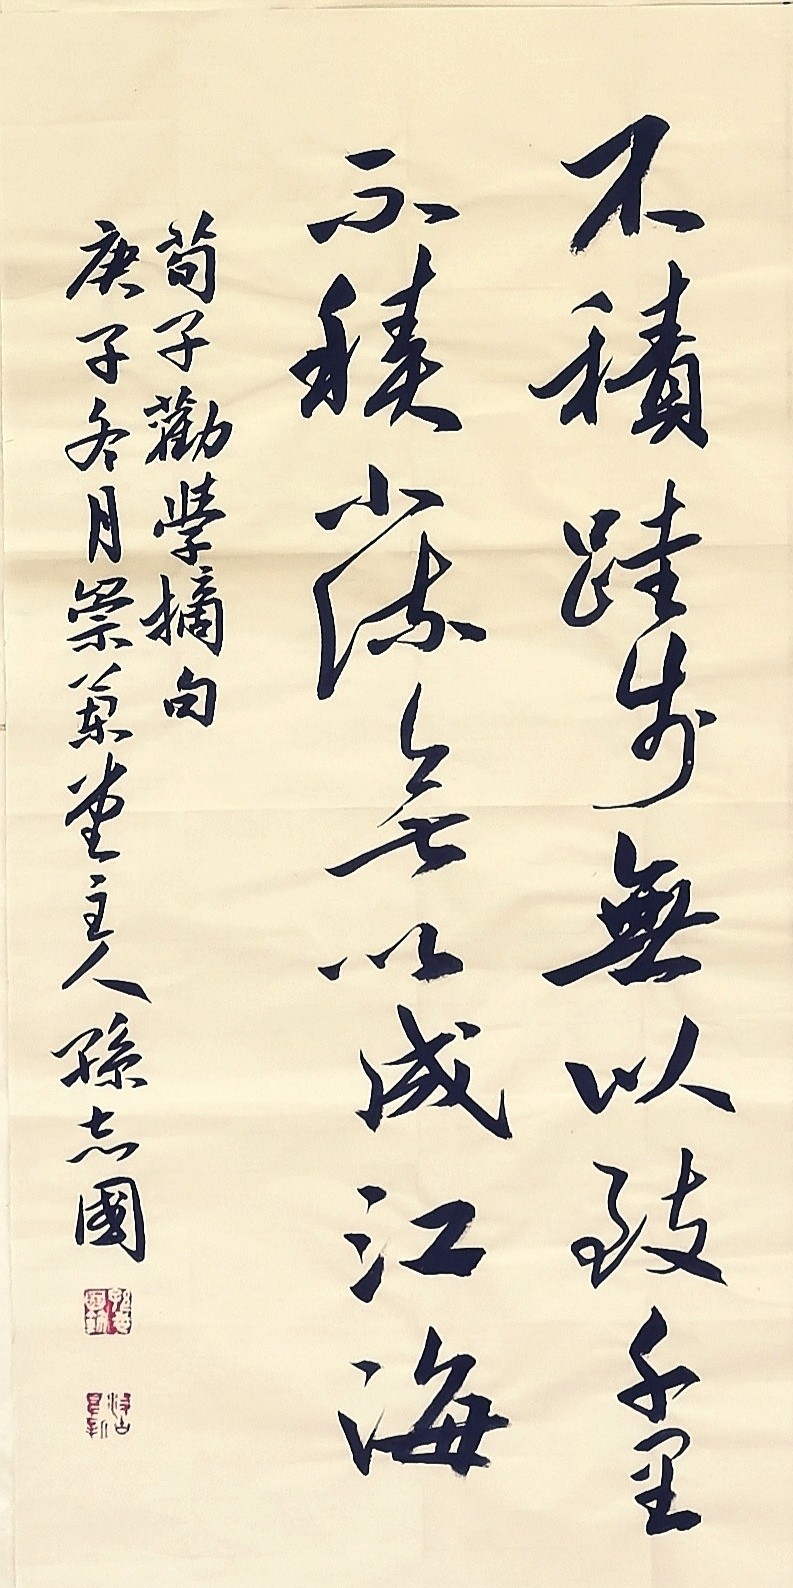 不積跬步無以致千里
不積小流無以成江海
荀子勸學摘句
庚子冬月崇蘭堂主人孫志國